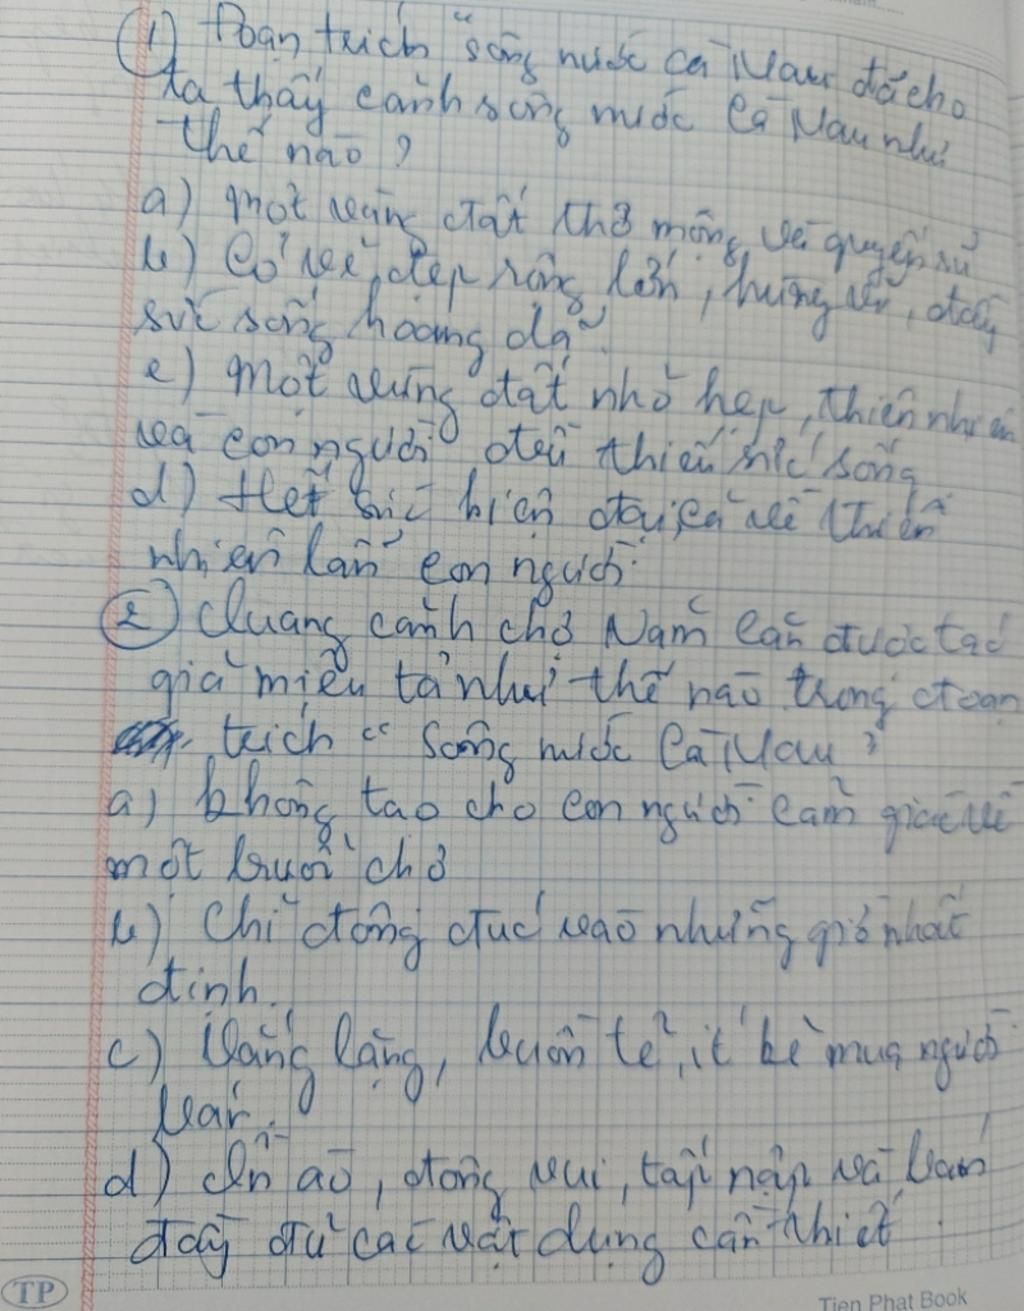 ① Đoạn trích "sông nước Cà Mau đã cho
ta thấy cảnh sông nước Cà Mau như
thế nào ?
a) một vùng đất thơ mộng và quyến rũ
b) Có vẻ đẹp rộng lớn, hùng vĩ, đầy
sức sống hoang dã.
c) một vùng đất nhỏ hẹp, thiên nhiên
và con người đều thiếu sức sống
d) Hết sức hiện đại cả về thiên
nhiên lẫn con người.
② Quang cảnh chợ Năm Căn được tác
giả miêu tả như thế nào trong đoạn
trích " Sông nước Cà Mau ?
a) không tạo cho con người cảm giác về
một buổi chợ
b) Chỉ đông đúc vào những giờ nhất
định.
c) Vắng lặng, buồn tẻ, ít kẻ mua người
bán.
d) Ồn ào, đông vui, tấp nập và bán
đầy đủ các vật dụng cần thiết.
TP
Tien Phat Book